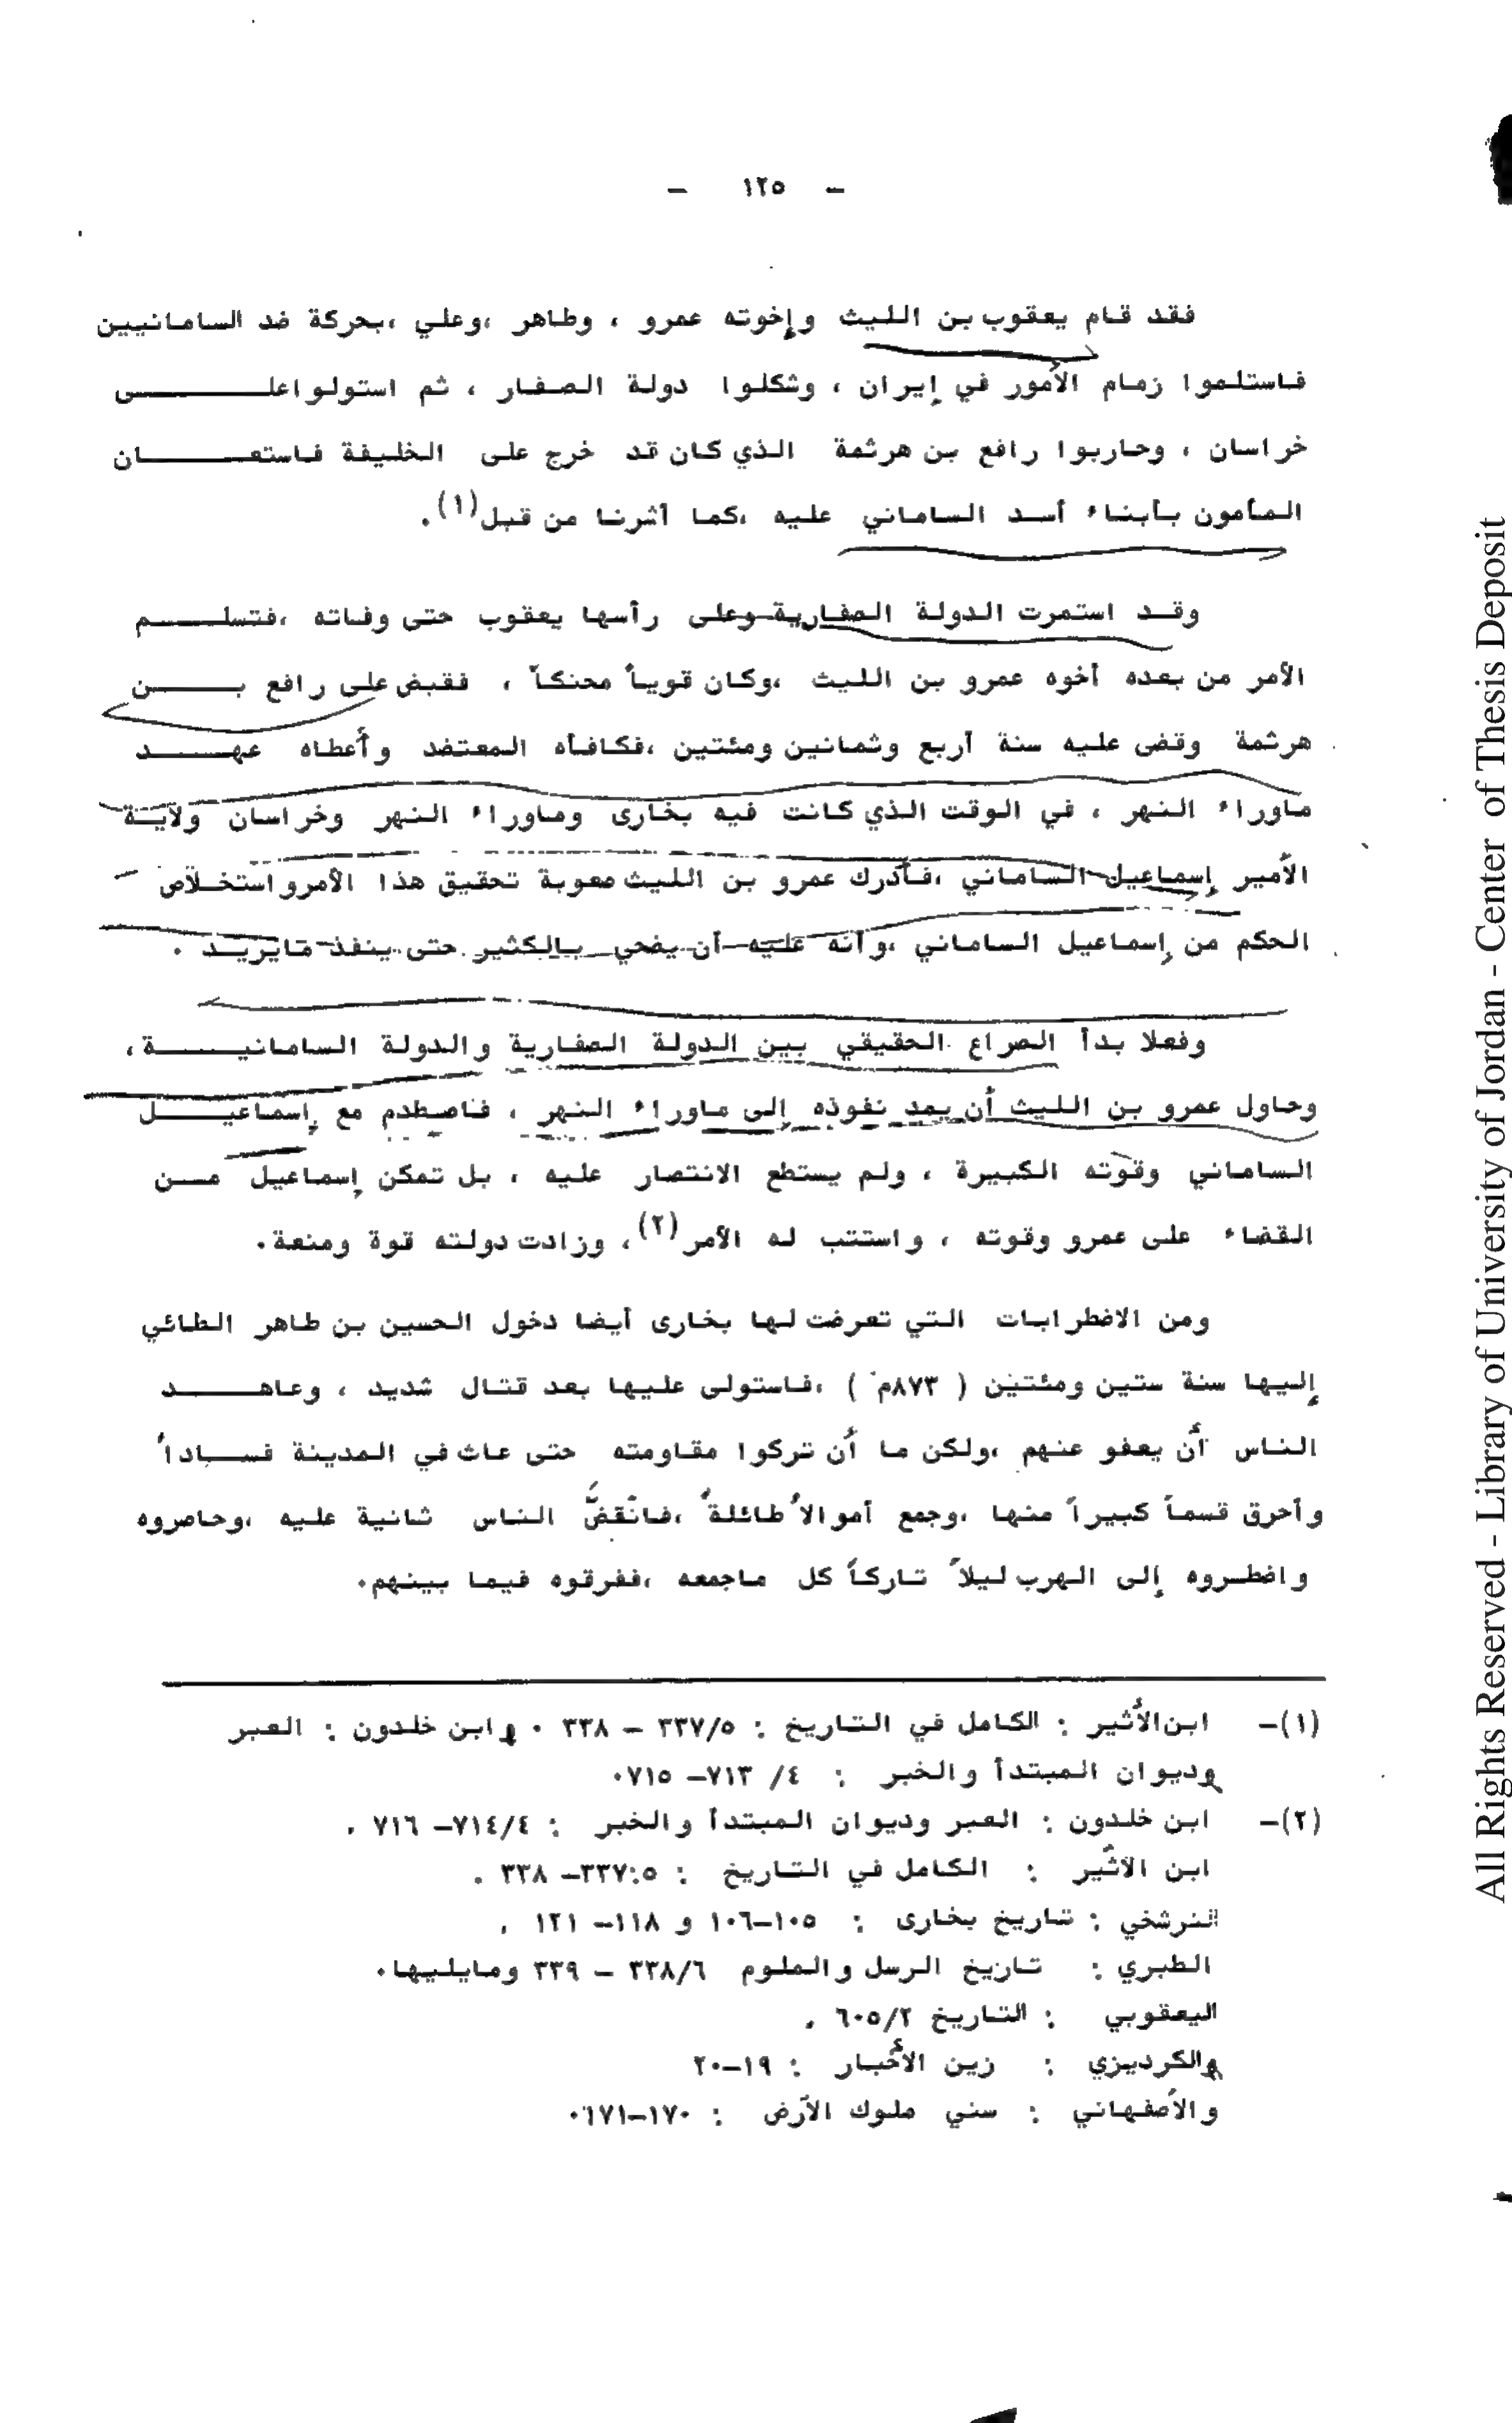 - ١٢٥ -
فقد قام يعقوب بن الليث وإخوته عمرو ، وطاهر ،وعلي ،بحركة ضد السامانيين
فاستلموا زمام الأمور في إيران ، وشكلوا دولة الصفار ، ثم استولوا على
خراسان ، وحاربوا رافع بن هرثمة الذي كان قد خرج على الخليفة فاستعان
المأمون بأبناء أسد الساماني عليه ،كما أشرنا من قبل(١).
وقد استمرت الدولة الصفارية وعلى رأسها يعقوب حتى وفاته ،فتسلم
الأمر من بعده أخوه عمرو بن الليث ،وكان قوياً محنكاً ، فقبض على رافع بن
هرثمة وقضى عليه سنة أربع وثمانين ومئتين ،فكافأه المعتضد وأعطاه عهد
ماوراء النهر ، في الوقت الذي كانت فيه بخارى وماوراء النهر وخراسان ولاية
الأمير إسماعيل الساماني ،فأدرك عمرو بن الليث صعوبة تحقيق هذا الأمر واستخلاص
الحكم من إسماعيل الساماني ،وأنه عليه أن يضحي بالكثير حتى ينفذ مايريد .
وفعلا بدأ الصراع الحقيقي بين الدولة الصفارية والدولة السامانية ،
وحاول عمرو بن الليث أن يمد نفوذه إلى ماوراء النهر ، فاصطدم مع إسماعيل
الساماني وقوته الكبيرة ، ولم يستطع الانتصار عليه ، بل تمكن إسماعيل من
القضاء على عمرو وقوته ، واستتب له الأمر(٢)، وزادت دولته قوة ومنعة.
ومن الاضطرابات التي تعرضت لها بخارى أيضا دخول الحسين بن طاهر الطائي
إليها سنة ستين ومئتين ( ٨٧٣م ) ،فاستولى عليها بعد قتال شديد ، وعاهد
الناس أن يعفو عنهم ،ولكن ما أن تركوا مقاومته حتى عاث في المدينة فساداً
وأحرق قسماً كبيراً منها ،وجمع أموالاً طائلة ،فانقضّ الناس ثانية عليه ،وحاصروه
واضطروه إلى الهرب ليلاً تاركاً كل ماجمعه ،ففرقوه فيما بينهم.
(١)- ابن الأثير : الكامل في التاريخ : ٣٣٧/٥ - ٣٣٨ . وابن خلدون : العبر
وديوان المبتدأ والخبر : ٤/ ٧١٣- ٧١٥.
(٢)- ابن خلدون : العبر وديوان المبتدأ والخبر : ٧١٤/٤- ٧١٦ .
ابن الأثير : الكامل في التاريخ : ٣٣٧:٥- ٣٣٨ .
النرشخي : تاريخ بخارى : ١٠٥-١٠٦ و ١١٨- ١٢١ .
الطبري : تاريخ الرسل والملوم ٣٣٨/٦ - ٣٣٩ ومايليها.
اليعقوبي : التاريخ ٦٠٥/٢ .
والكرديزي : زين الأخبار : ١٩-٢٠
والأصفهاني : سني ملوك الأرض : ١٧٠-١٧١.
All Rights Reserved - Library of University of Jordan - Center of Thesis Deposit